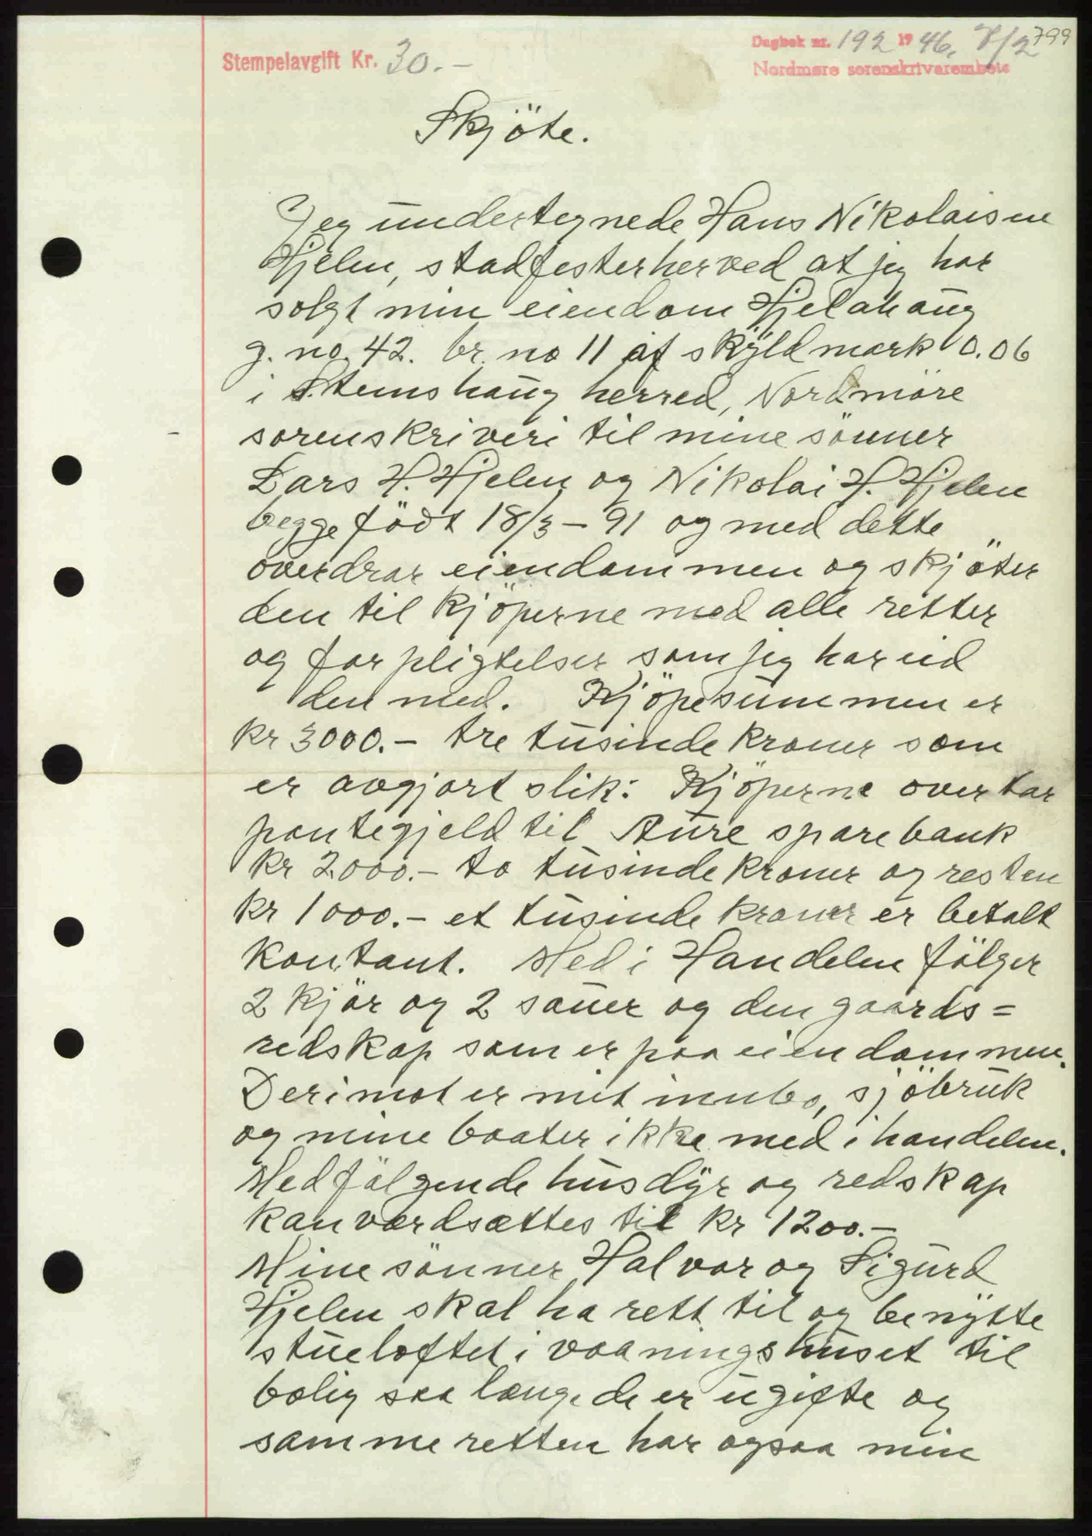 Stempelavgift Kr. 30.-
Dagbok nr. 192 1946. 7/2 799
Nordmøre sorenskrivarembete
Skjöte.
Jeg undertegnede Hans Nikolaisen
Hjelen, stadfester herved at jeg har
solgt min eiendom Hjelahaug
g. no. 42. br. no 11 af skyldmark 0.06
i Stemshaug herred, Nordmöre
sorenskriveri til mine sönner
Lars H. Hjelen og Nikolai H. Hjelen
begge födt 18/3 - 91 og med dette
overdrar eiendommen og skjöter
den til kjöperne med alle retter
og forpligtelser som jeg har eid
den med. Kjöpesummen er
kr 3000.- tre tusinde kroner som
er avgjort slik: Kjöperne overtar
pantegjeld til Aure sparebank
kr 2000.- to tusinde kroner og resten
kr 1000.- et tusinde kroner er betalt
kontant. Med i Handelen fölger
2 kjör og 2 sauer og den gaards=
redskap som er paa eiendommen.
Derimot er mit innbo, sjöbruk
og mine baater ikke med i handelen.
Medfölgende husdyr og redskap
kan værdsættes til kr 1200.-
Mine sönner Halvor og Sigurd
Hjelen skal ha rett til og benytte
stueloftet i vaaningshuset til
bolig saa længe de er ugifte og
samme retten har ogsaa min